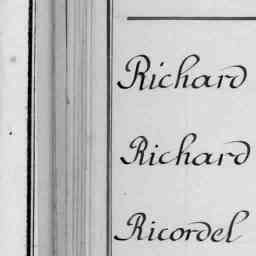 Richard
Richard
Ricordel